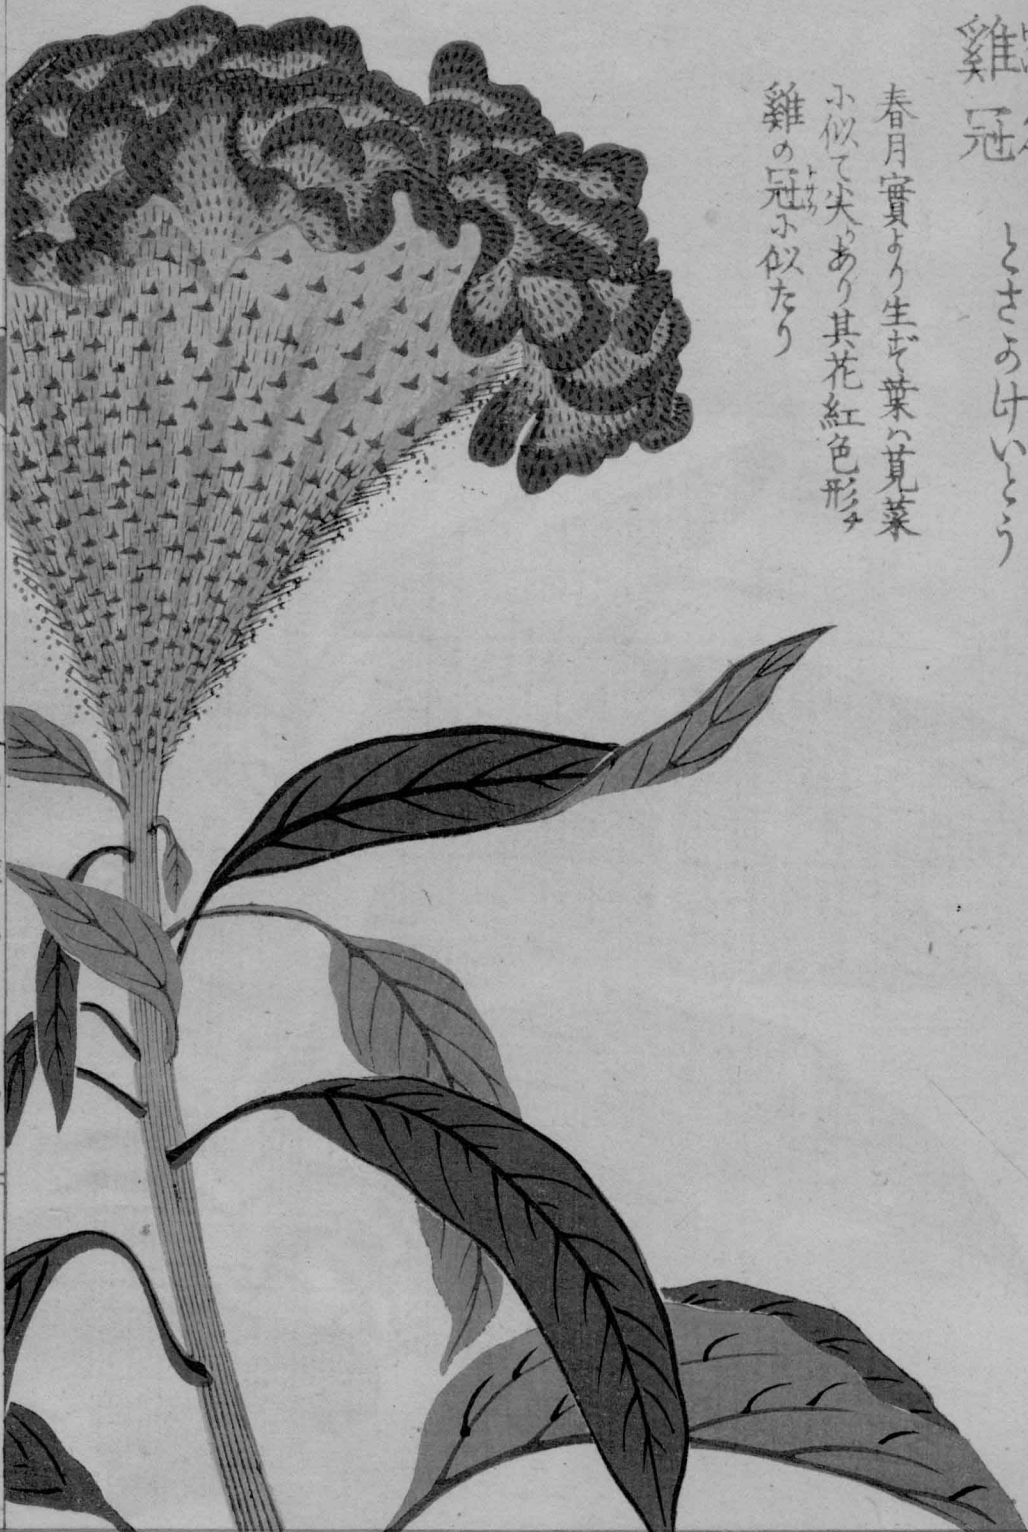 雞冠 とさかけいとう
春月實より生ず葉ハ莧菜
小似て尖りあり其花紅色形チ
雞の冠小似たり
トサカ